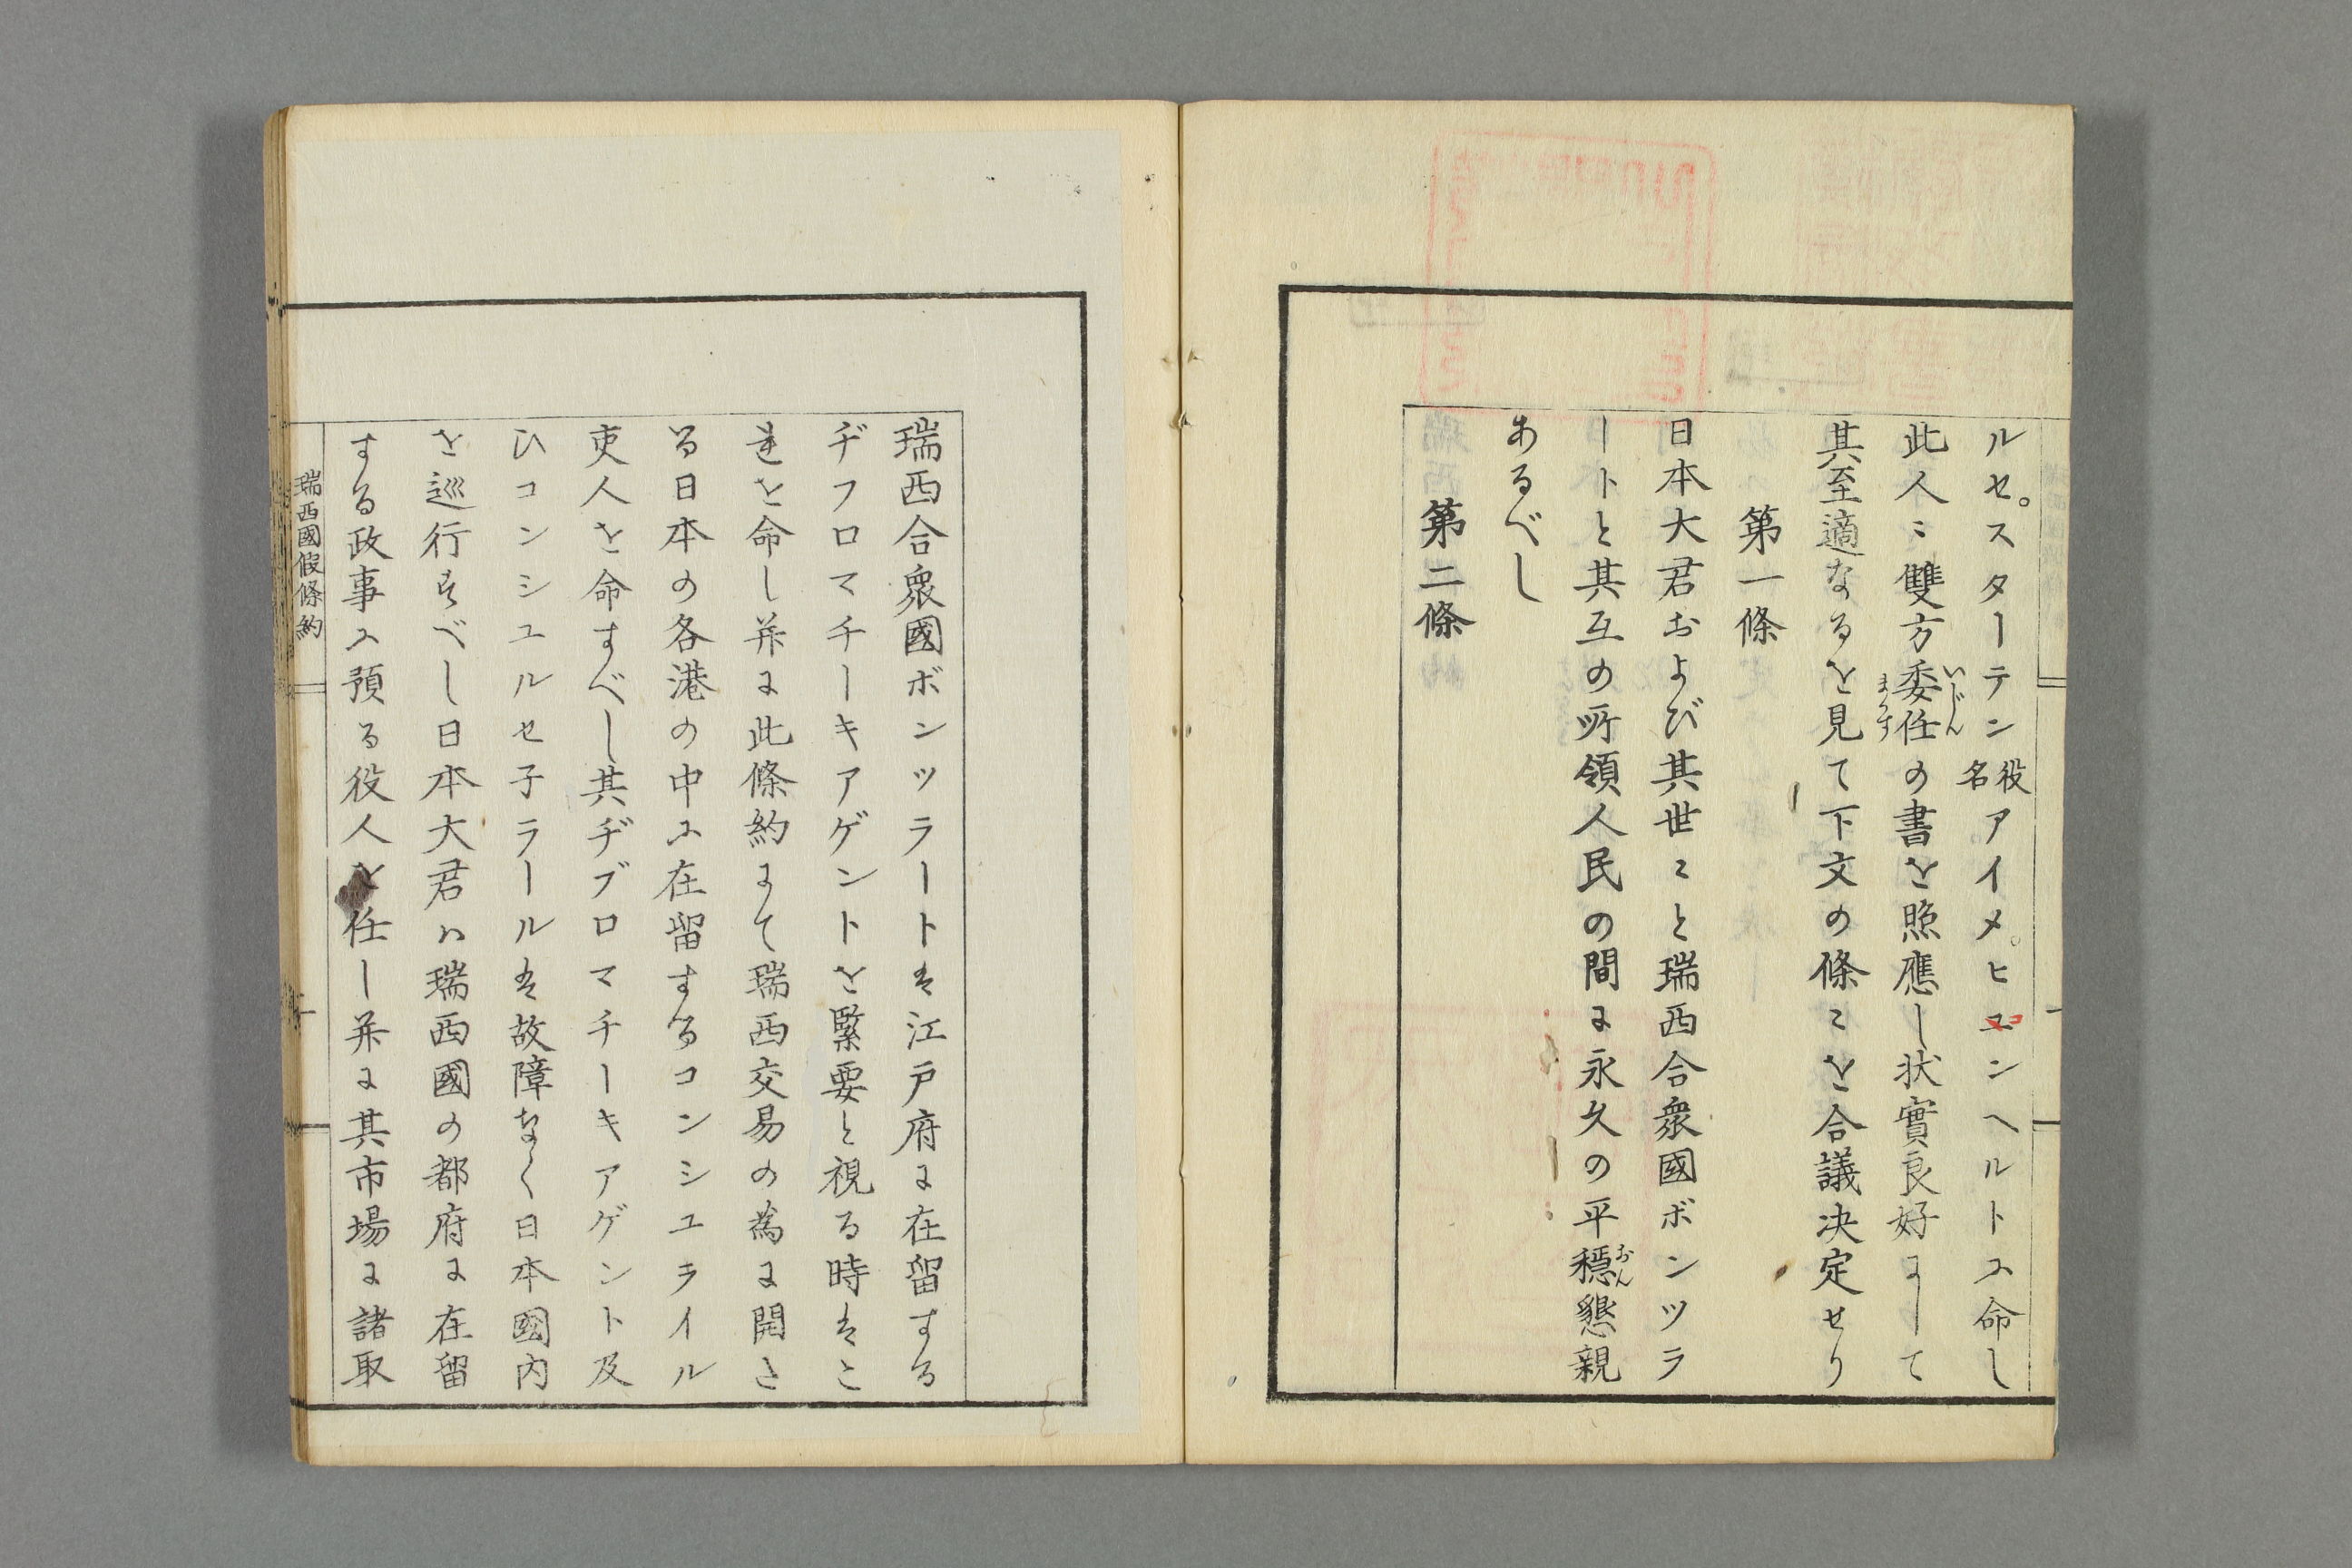 ルセ。スターテン役名アイメ。ヒコンヘルトニ命し
此人〻雙方委任の書を照應し状實良好にして
いじん
まかす
其至適なるを見て下文の條〻を合議决定せり
第一條
日本大君および其世〻と瑞西合衆國ボンツラ
ートと其互の所領人民の間に永久の平穏懇親
おん
あるべし
第二條
瑞西合衆國ボンツラートは江戸府に在留する
ヂフロマチーキアゲントを緊要と視る時はこ
れを命し并に此條約にて瑞西交易の為に開き
る日本の各港の中に在留するコンシユライル
吏人を命すべし其ヂブロマチーキアゲント及
ひコンシユルセ子ラールは故障なく日本國内
を巡行すべし日本大君ハ瑞西國の都府に在留
する政事ニ預る役人を任し并に其市場に諸取
瑞西國假條約